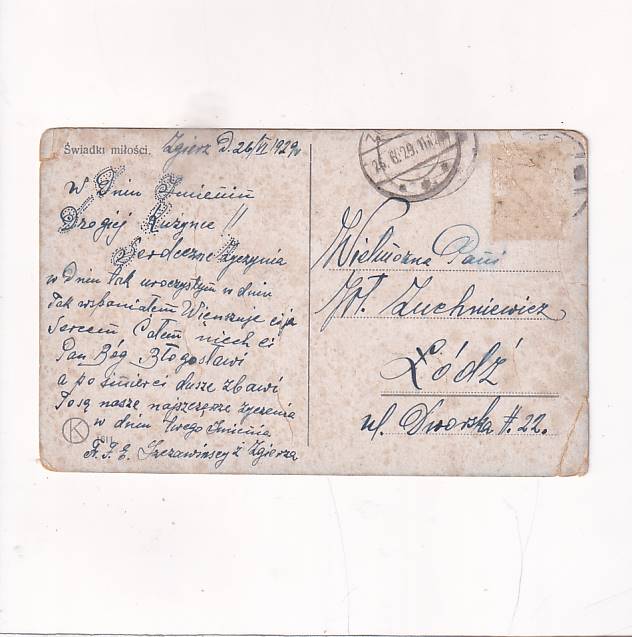 Świadki miłości.
Zgierz D. 26/VI 1929
W Dniu Imienin
Drogiej Kuzynce !!
Serdeczne Życzynia
w Dniu tak uroczystym w dniu
Tak wspaniałem Wienszuje ci ja
Sercem Całem niech ci
Pan Bóg Błogosławi
a po śmierci dusze zbawi
Są nasze najszczersze życzenia
w dniu twego Imienia
Szczawińscy z Zgierza
K
26.6.29.11
Wielmożna Pani
Wł. Zuchniewicz
Łódź
ul. Dworska #. 22.